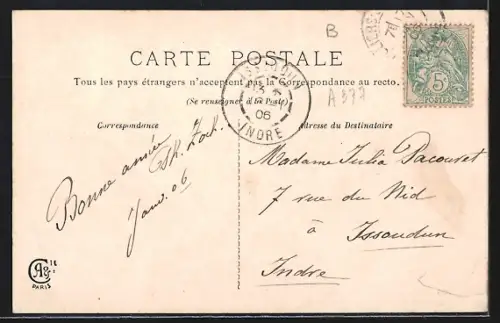 B
CARTE POSTALE
Tous les pays étrangers n'acceptent pas la Correspondance au recto.
(Se renseigner à la Poste)
ISSOUDUN
3
06
INDRE
5c
POSTES
A 377
Correspondance
Adresse du Destinataire
Bonne année
Janv. 06
Madame Julia Pacouret
7 rue du Nid
à
Issoudun
Indre
PARIS